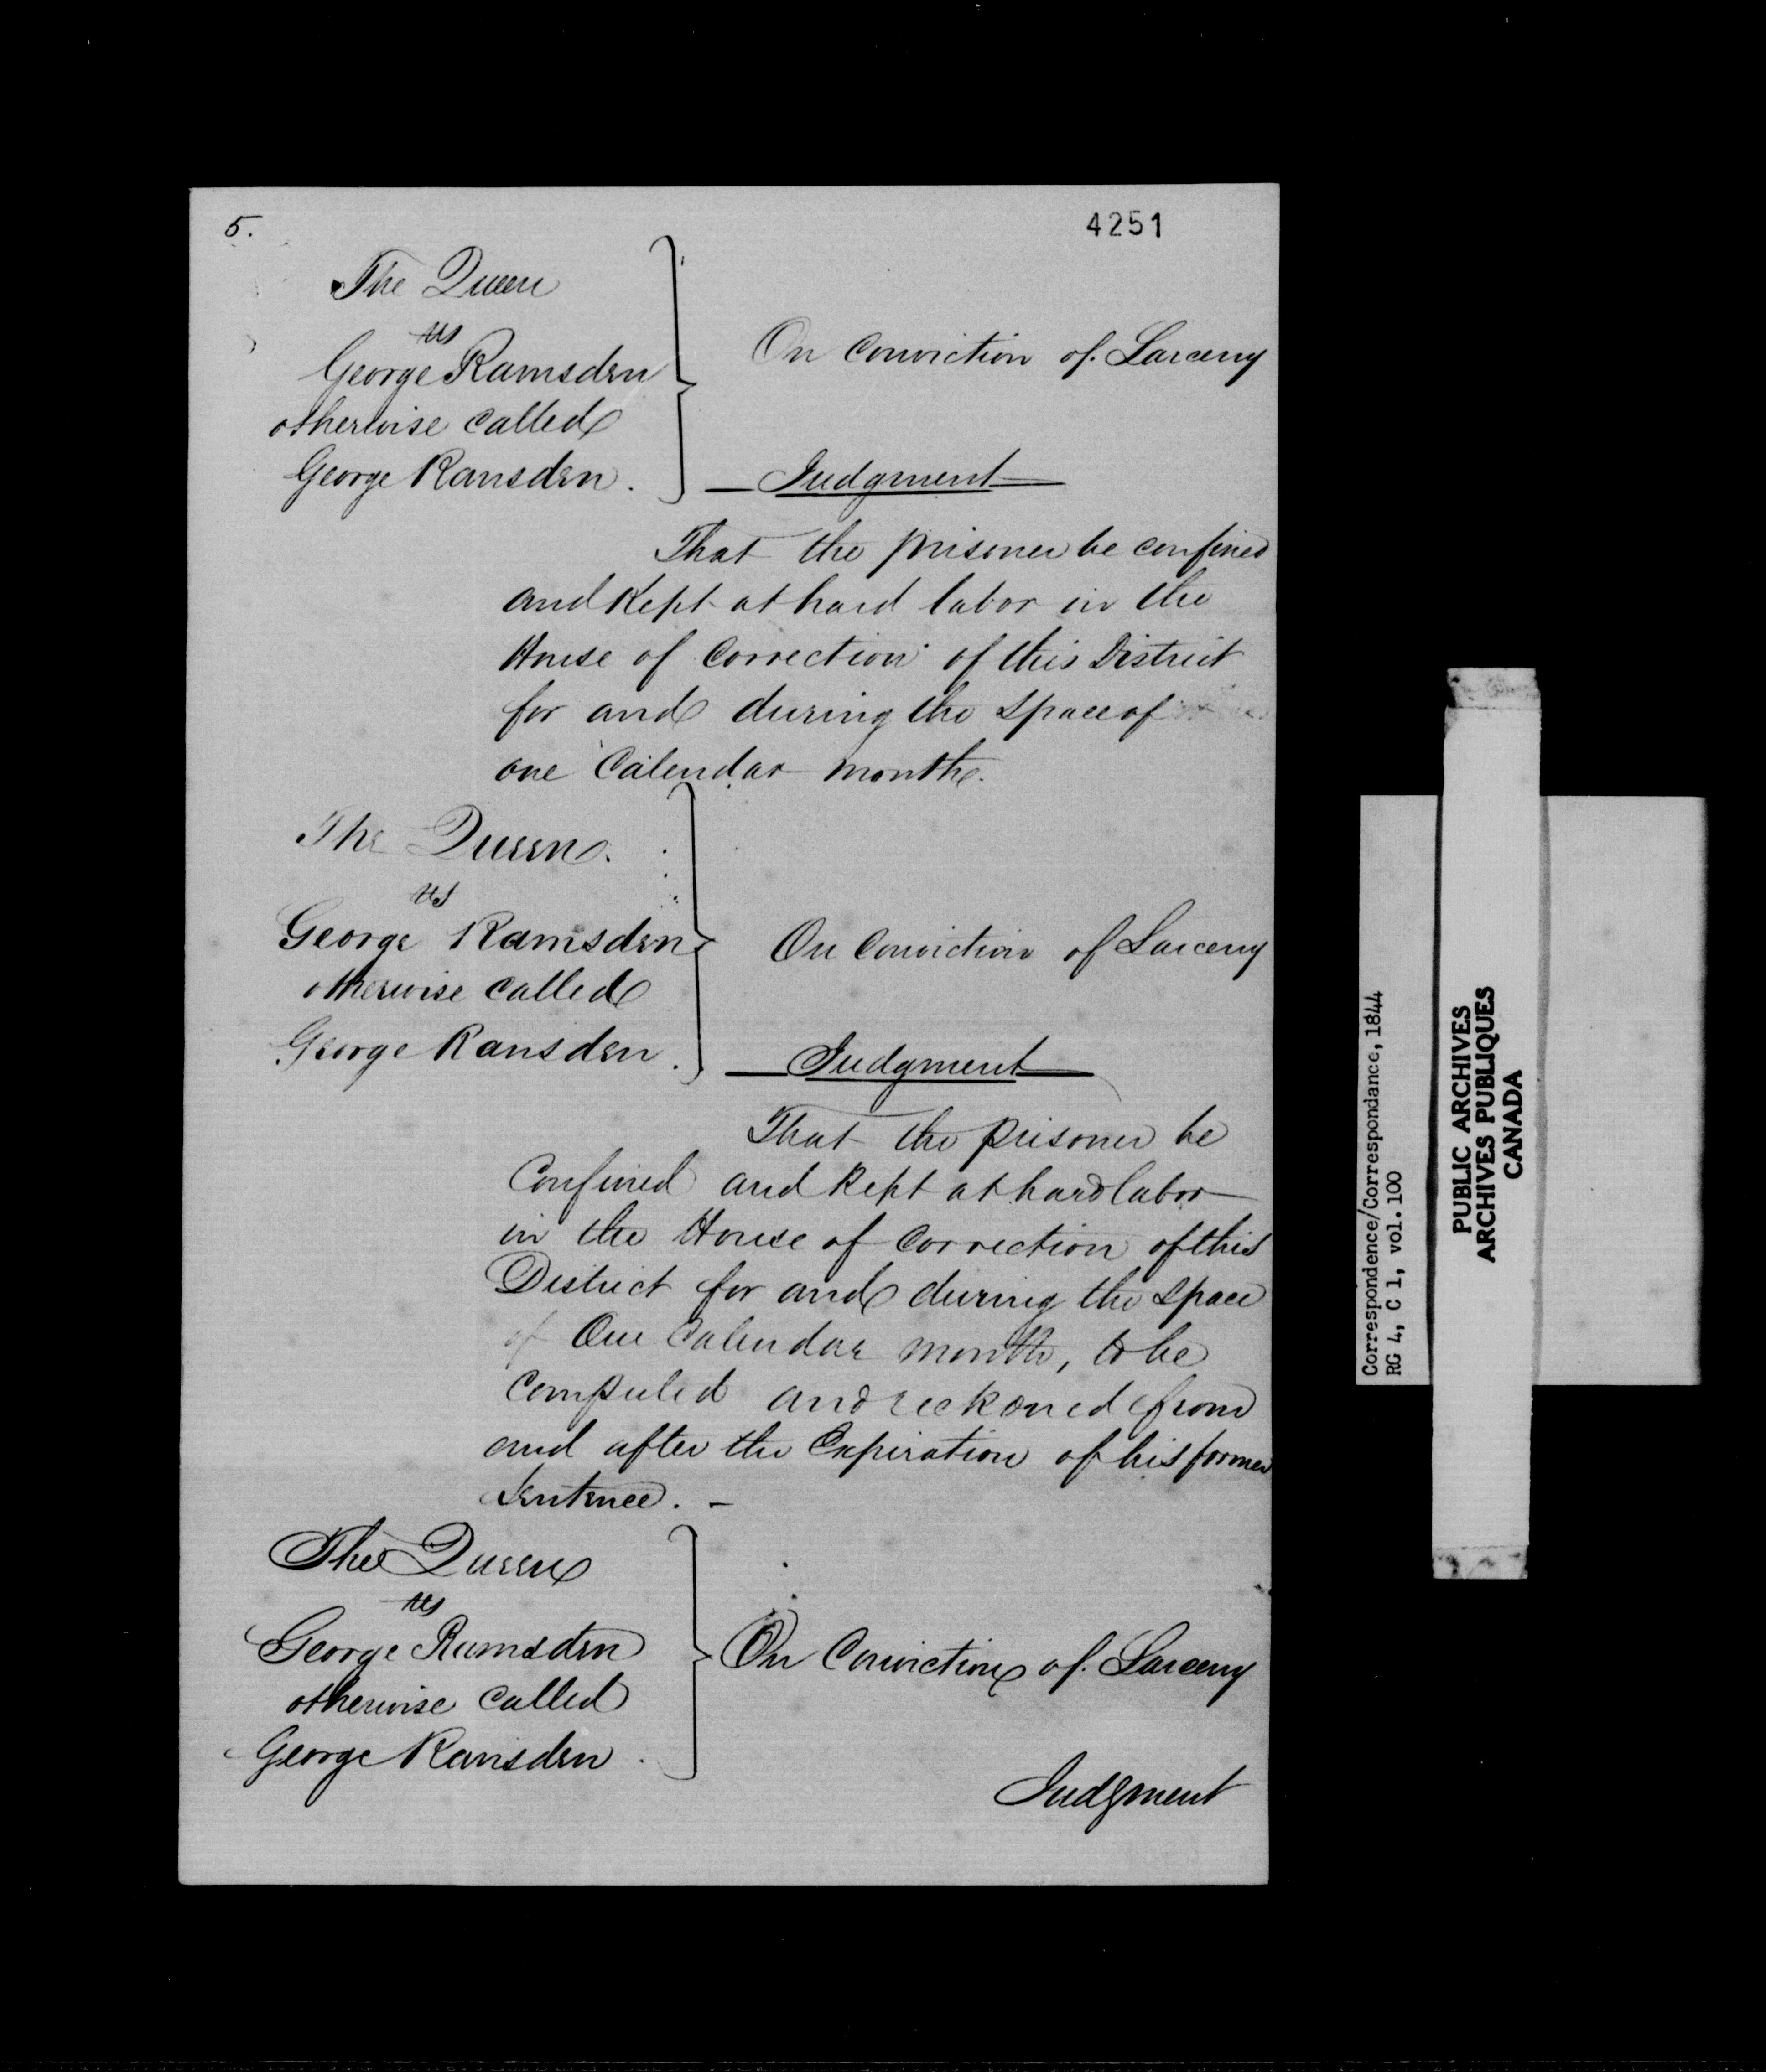 5.
4251
The Queen
vs
George Ramsden
otherwise called
George Ransden.
On Conviction of Larceny
Judgment
That the prisoner be confined
and kept at hard labor in the
House of Correction of this District
for and during the space of
one Calendar month.
The Queen.
vs
George Ramsden
otherwise called
George Ransden.
On Conviction of Larceny
Judgment
That the prisoner be
Confined and kept at hard labor
in the House of Correction of this
District for and during the space
of One Calendar month, to be
Computed and reckoned from
and after the Expiration of his former
Sentence. -
The Queen
vs
George Ramsden
otherwise called
George Ransden.
On Conviction of Larceny
Judgment
Correspondence/Correspondance, 1844
RG 4, C 1, vol. 100
PUBLIC ARCHIVES
ARCHIVES PUBLIQUES
CANADA